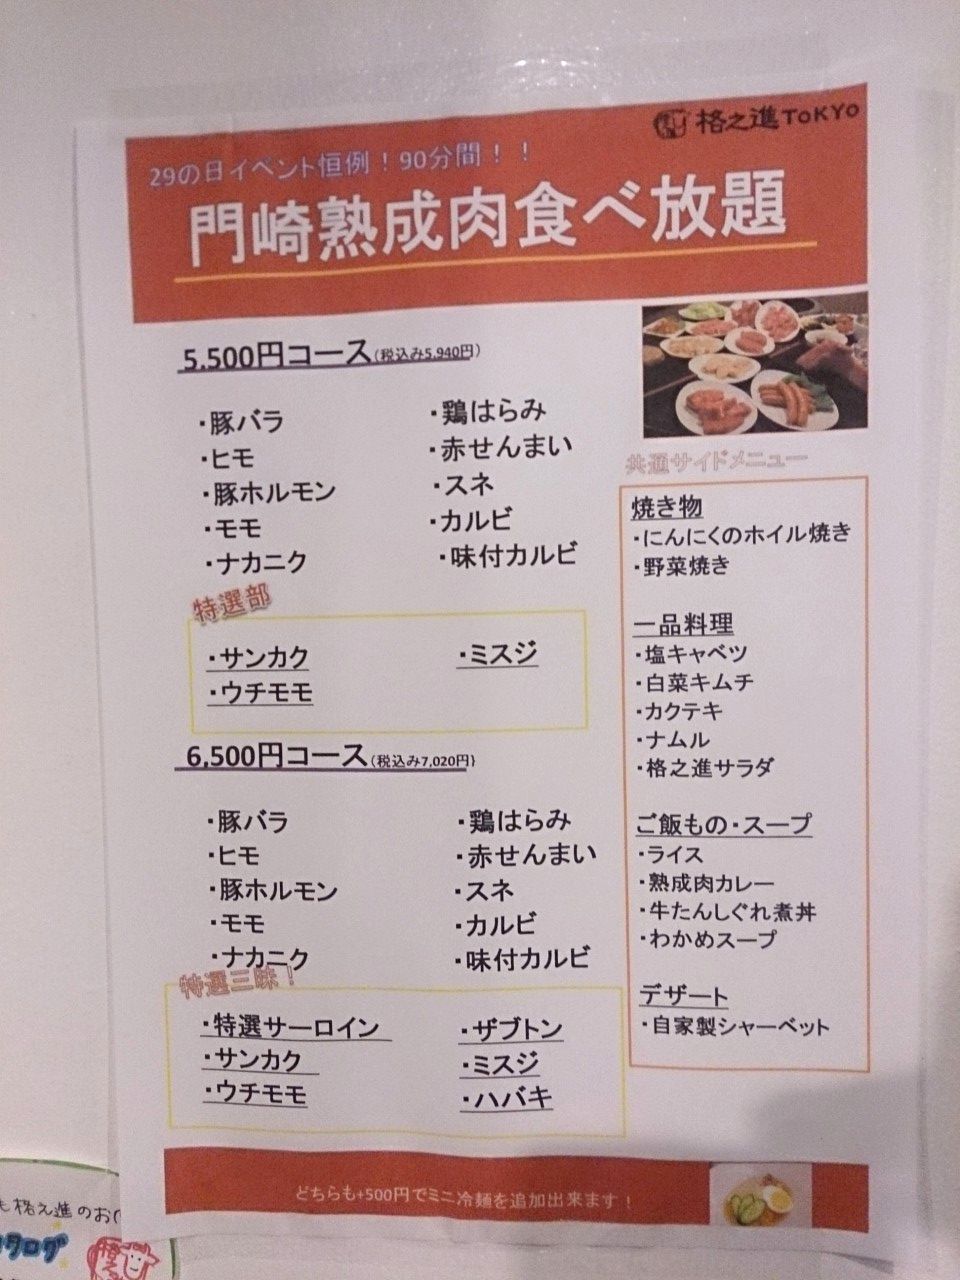 格之進TOKYO
29の日イベント恒例！90分間！！
門崎熟成肉食べ放題
5,500円コース（税込み5,940円）
・豚バラ
・ヒモ
・豚ホルモン
・モモ
・ナカニク
・鶏はらみ
・赤せんまい
・スネ
・カルビ
・味付カルビ
特選部
・サンカク
・ウチモモ
・ミスジ
6,500円コース（税込み7,020円）
・豚バラ
・ヒモ
・豚ホルモン
・モモ
・ナカニク
・鶏はらみ
・赤せんまい
・スネ
・カルビ
・味付カルビ
特選三昧！
・特選サーロイン
・サンカク
・ウチモモ
・ザブトン
・ミスジ
・ハバキ
共通サイドメニュー
焼き物
・にんにくのホイル焼き
・野菜焼き
一品料理
・塩キャベツ
・白菜キムチ
・カクテキ
・ナムル
・格之進サラダ
ご飯もの・スープ
・ライス
・熟成肉カレー
・牛たんしぐれ煮丼
・わかめスープ
デザート
・自家製シャーベット
どちらも+500円でミニ冷麺を追加出来ます！
も格之進のお
タログ